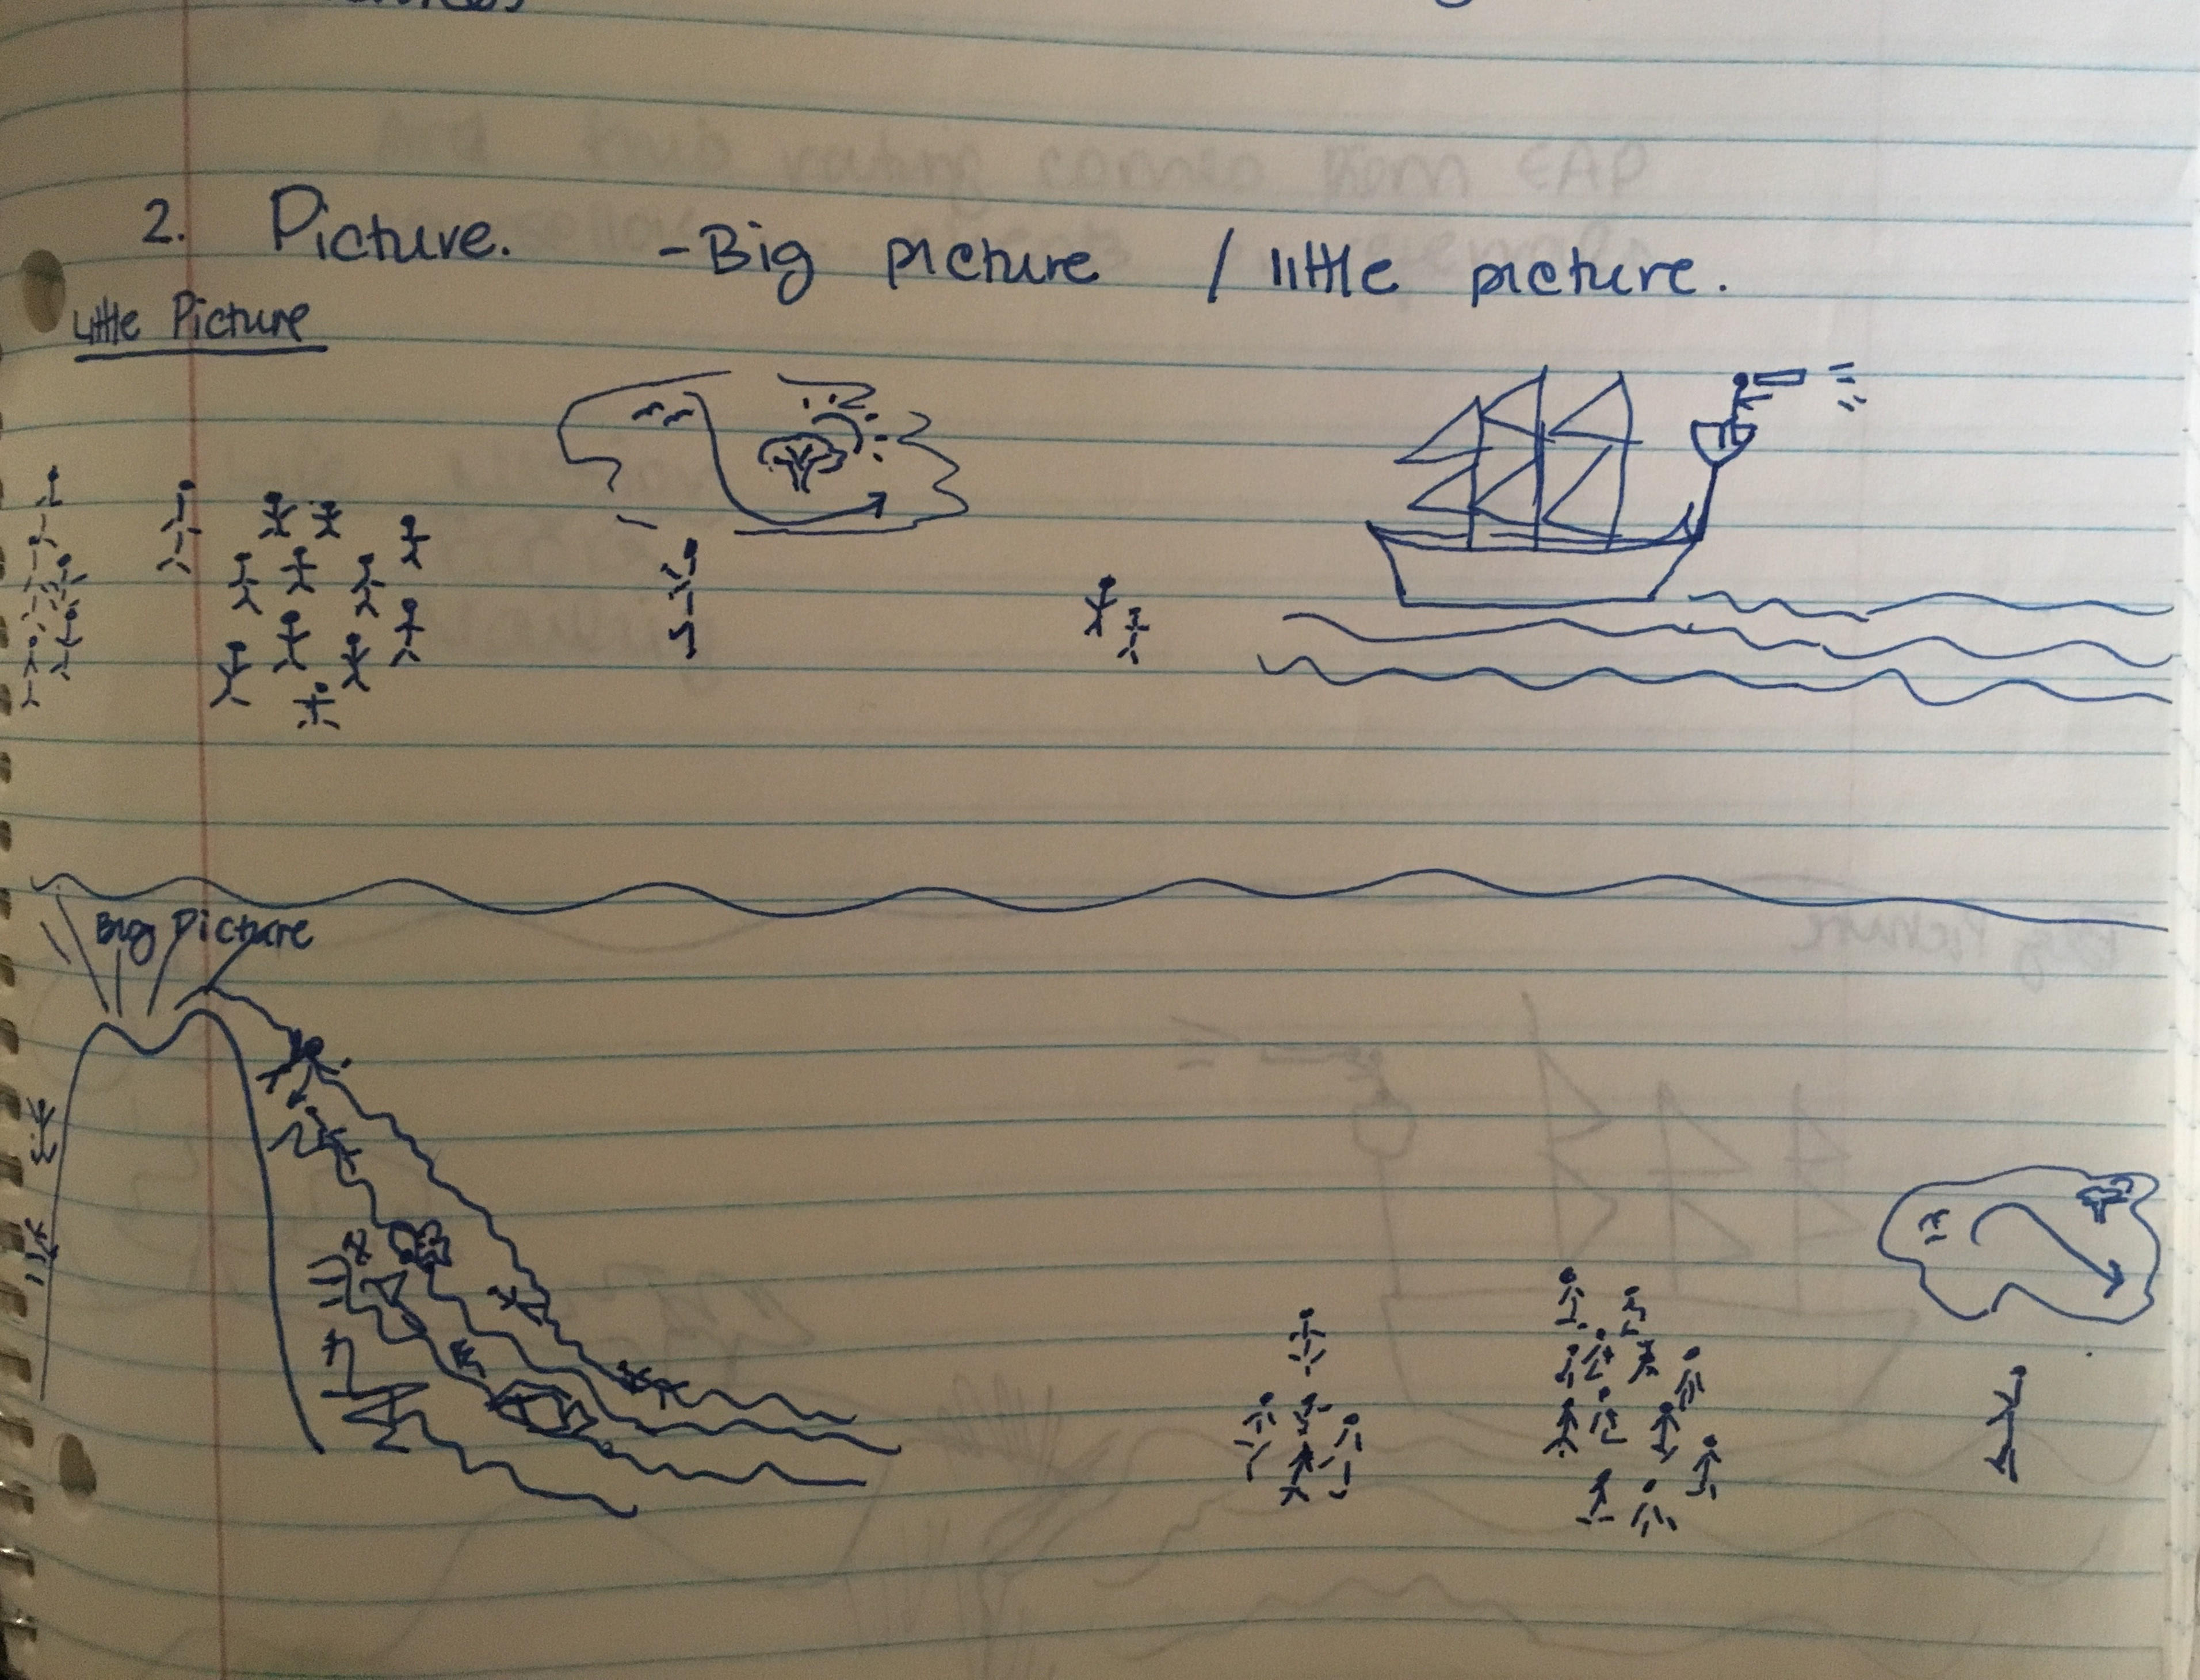 2. Picture. - Big picture / little picture.
Little Picture
Big Picture